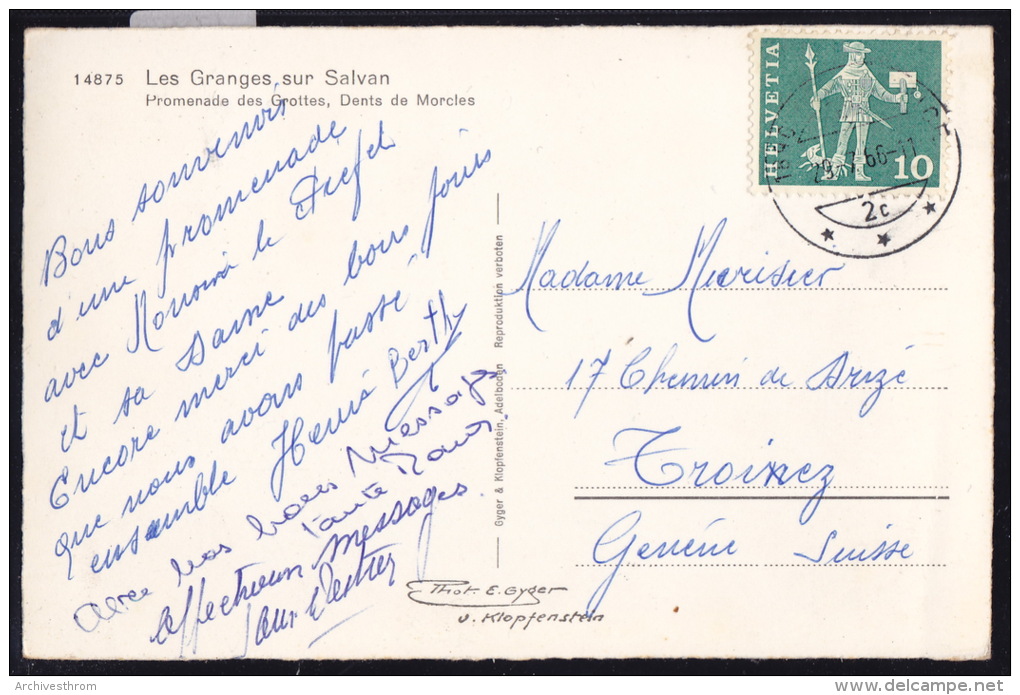 14875 Les Granges sur Salvan
Promenade des Grottes, Dents de Morcles
Bons souvenirs
d'une promenade
avec Monsieur le Préfet
et sa Dame
Encore merci des bons jours
que nous avons passé
ensemble Henri Berthy
avec bons messages
Tante
affectueux messages.
Gyger & Klopfenstein, Adelboden Reproduktion verboten
Phot. E. Gyger
u. Klopfenstein
HELVETIA
10
29.7.66-11
2c
Madame Merisier
17 Chemin de Arizé
Troinex
Genève Suisse
Archivesthrom
delcampe.net